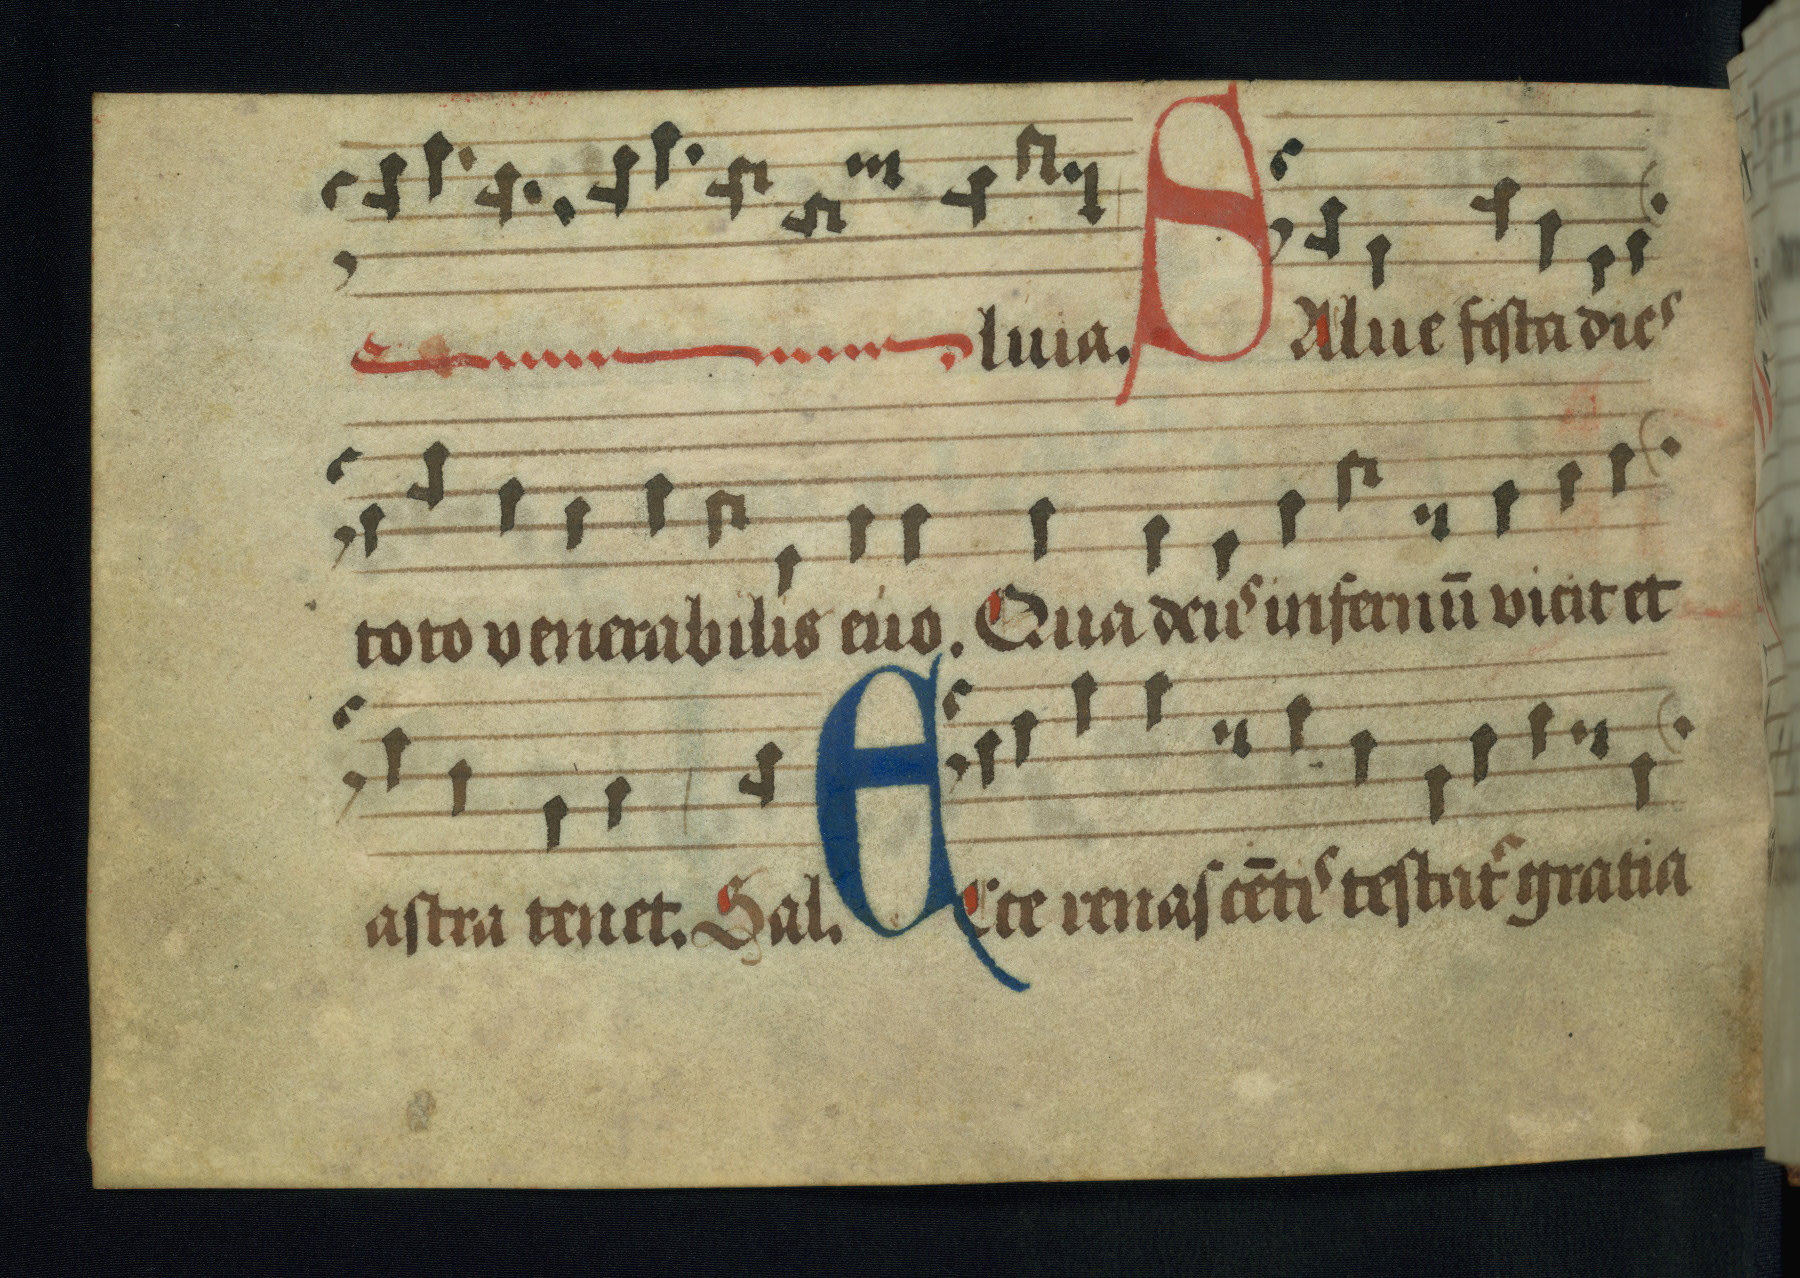 luia. SAlue festa dies
toto venerabilis euo. Qua deus infernū vicit et
astra tenet. Sal. EEcce renascētis testat᷑ gratia